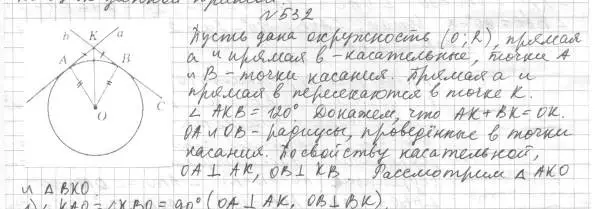 №532
b K a
A B
O
C
Пусть дана окружность (O; R), прямая
a и прямая b - касательные, точки A
и B - точки касания. Прямая a и
прямая b пересекаются в точке K.
∠ AKB = 120°. Докажем, что AK + BK = OK.
OA и OB - радиусы, проведённые в точки
касания. По свойству касательной,
OA ⊥ AK, OB ⊥ KB. Рассмотрим △ AKO
и △ BKO
1) ∠ KAO = ∠ KBO = 90° (OA ⊥ AK, OB ⊥ BK)